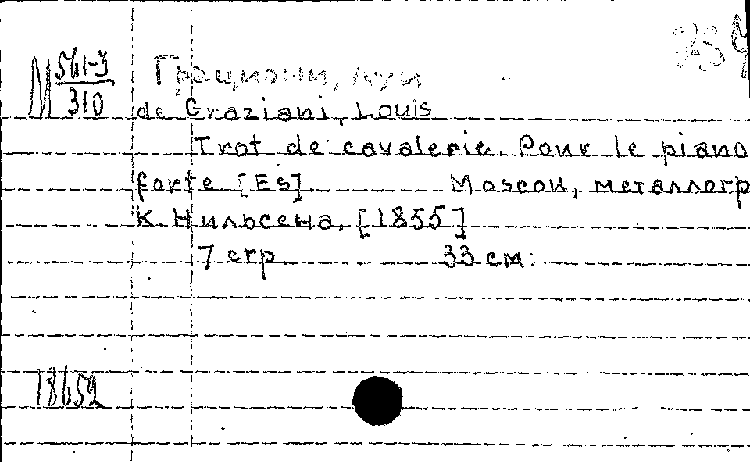 М 561-3
310
Грациани, Луи
de Graziani, Louis
Trot de cavalerie. Pour le piano
forte [Es] Moscou, металлогр
К. Нильсена, [1855]
7 стр 33 см.
18652